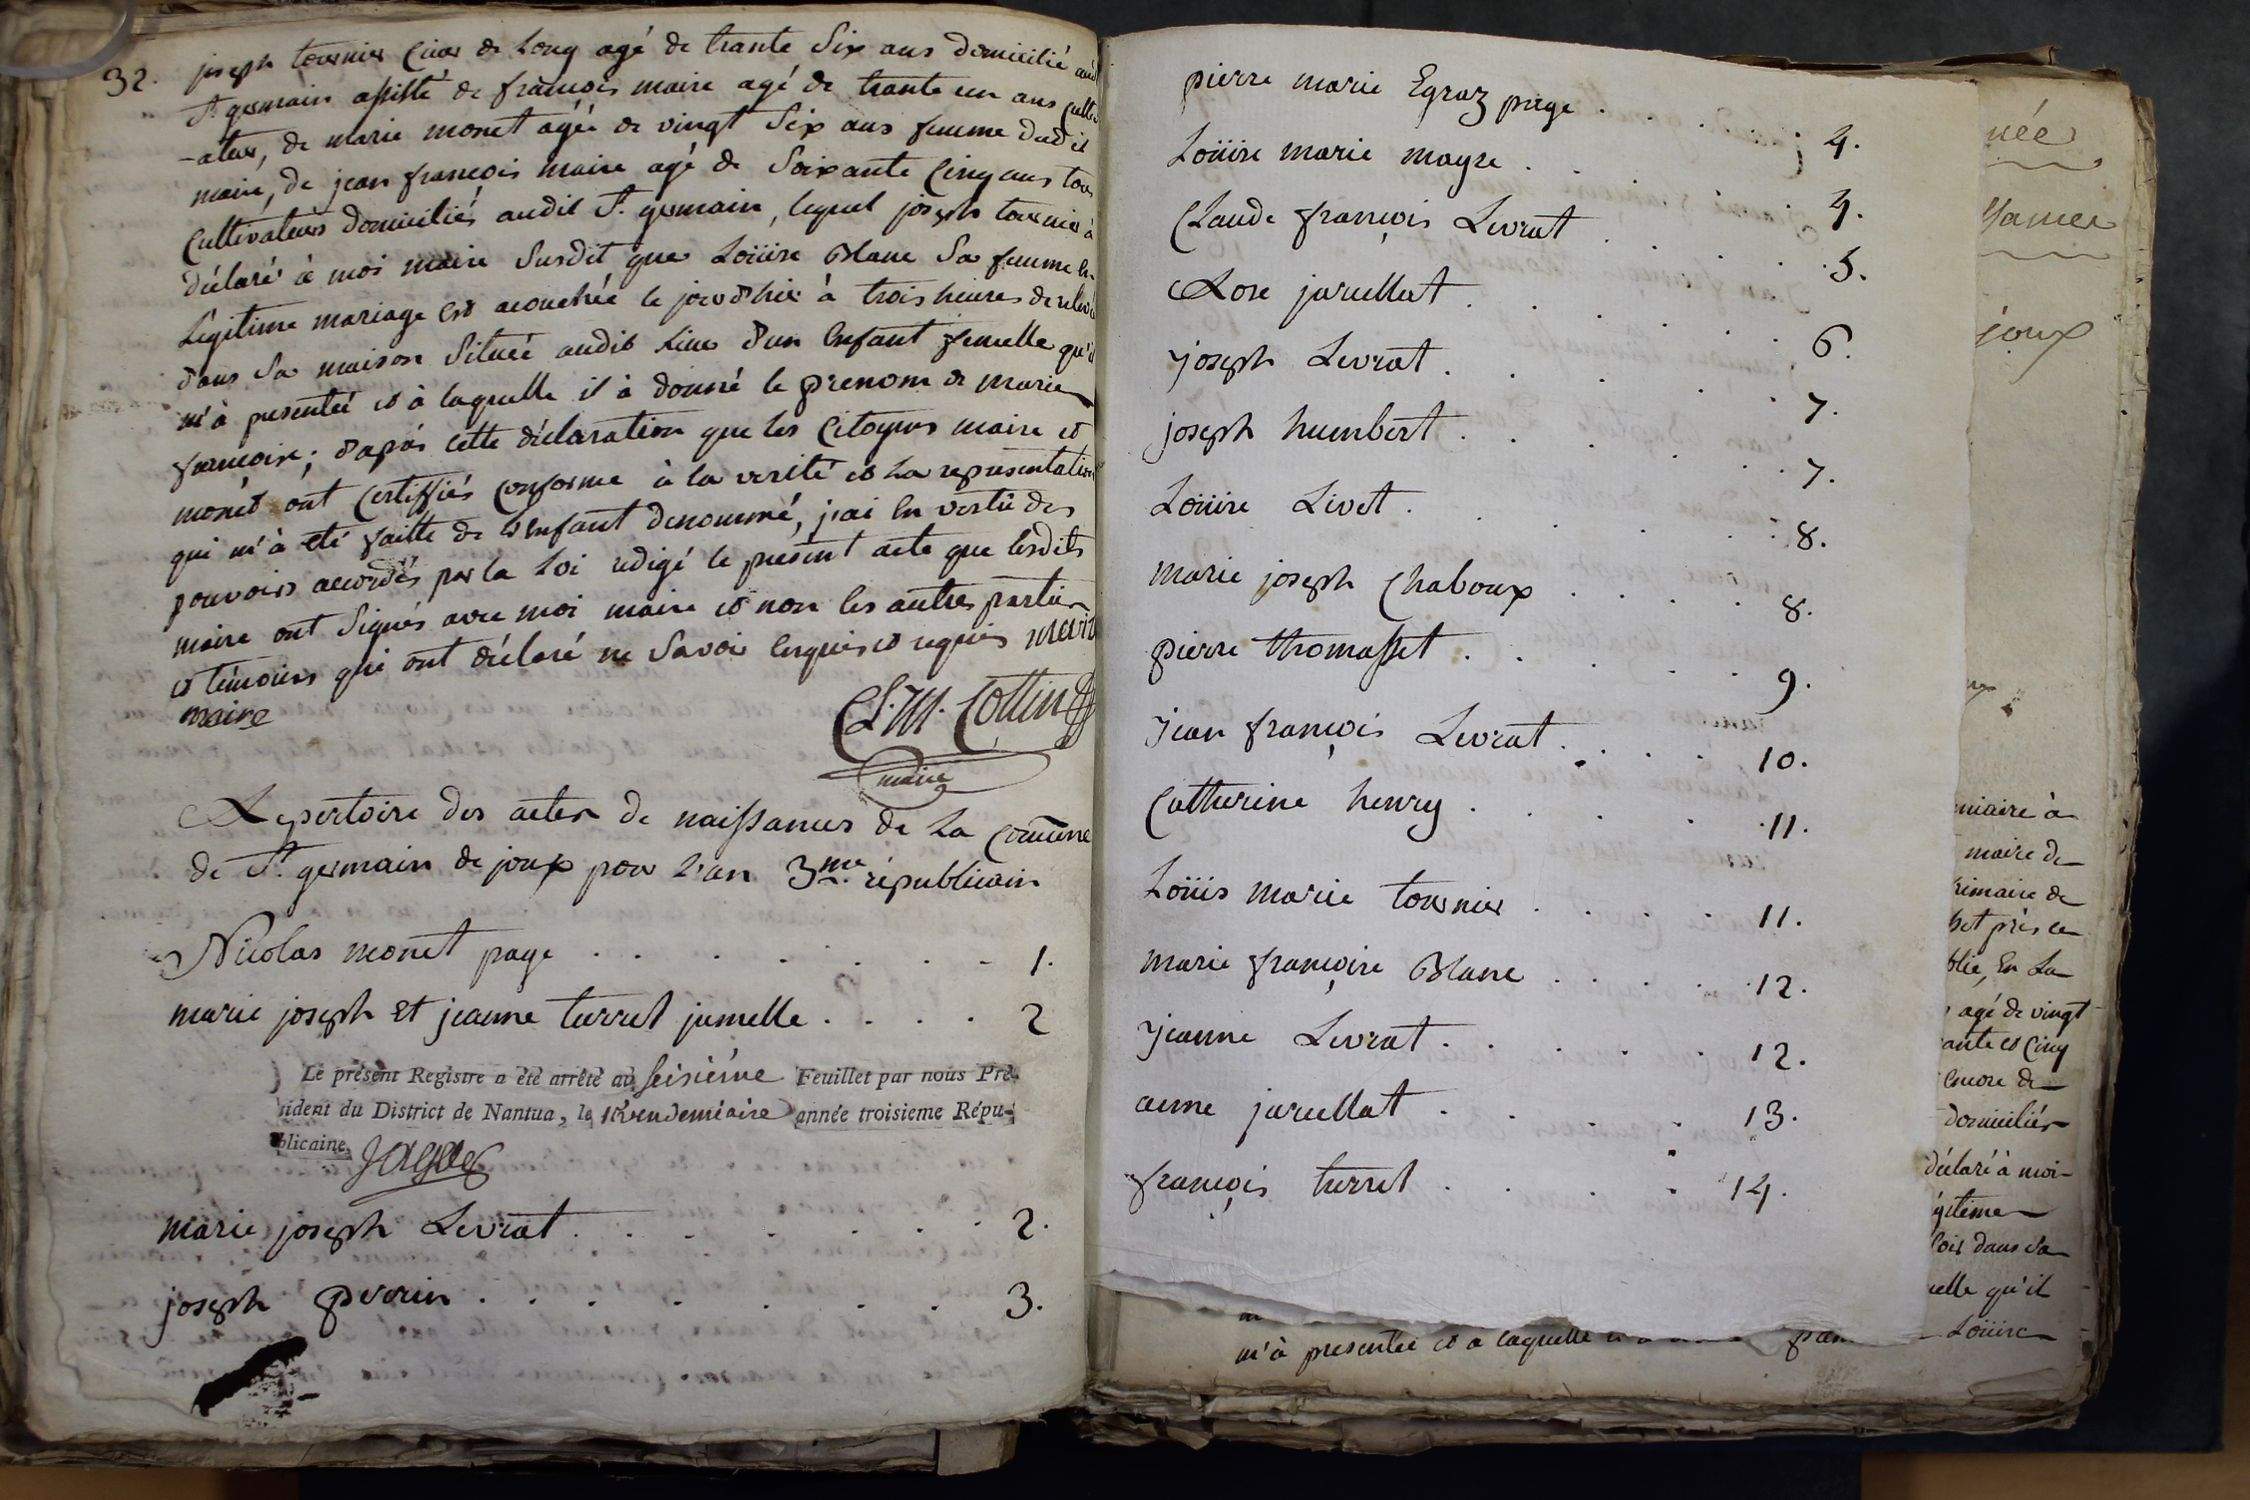 32. joseph tournier Cieur de Long agé de trante Six ans domicilié audit
St. germain assisté de francois maire agé de trante un ans Cultiv
-ateur, de marie monet agée de vingt Six ans femme dudit
maire, de jean francois maire agé de Soixante Cinq ans tous
Cultivateurs domiciliés audit St. germain, lequel joseph tournier à
déclaré à moi maire Susdit que Loüise Blanc Sa femme En
Légitime mariage Est acouchée le jourd'hier à trois heures de relevée
dans Sa maison Située audit Lieu d'un Enfant femelle qu'il
m'à presentée et à laquelle il à donné le prenom de marie
francoise; d'après cette déclaration que les Citoyens maire et
monet ont Certiffiés Conforme à la verité et La representation
qui m'à eté faitte de L'Enfant denommé, j'ai En vertu des
pouvoirs accordés par la Loi redigé le présent acte que lesdits
maire ont Signés avec moi maire et non les autres parties
et témoins qui ont déclaré ne Savoir Enquis et requis
maire
C.L.M. Cottin
maire
Repertoire des actes de naissances de La Commune
de St. germain de joux pour L'an 3me. républicain
Nicolas monet page . . . . . . . 1.
marie joseph Et jeanne turret jumelle . . . . 2
Le présent Registre a été arrêté au seisiéme Feuillet par nous Pré-
sident du District de Nantua, le vendemiaire année troisieme Répu-
blicaine.
marie joseph Levrat . . . . . . 2.
joseph perrin . . . . . . 3.
pierre marie Egraz page . . . . 4.
Loüise marie mayre . . . . 4.
Claude françois Levrat . . . . 5.
Rose jarullat . . . . . 6.
joseph Levrat . . . . . 7.
joseph humbert . . . . . 7.
Loüise Livet . . . . . 8.
marie joseph Chaboux . . . . 8.
pierre thomasset . . . . . 9.
jean françois Levrat . . . . 10.
Catherine henry . . . . . 11.
Loüis marie tournier . . . . 11.
marie françoise Blanc . . . . 12.
jeanne Levrat . . . . . 12.
anne jarullat . . . . . 13.
françois turret . . . . 14.
née
joux
maire de
agé de vingt
ante et Cinq
Encore de
domiciliés
déclaré à moi
égitime
dans Sa
elle qu'il
m'à presentée et a laquelle
Loüise